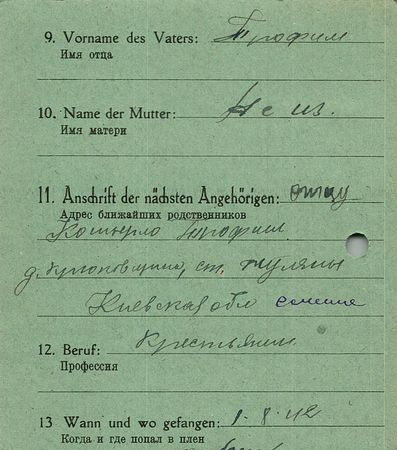 9. Vorname des Vaters: Трофим
Имя отца
10. Name der Mutter: Не из.
Имя матери
11. Anschrift der nächsten Angehörigen: отцу
Адрес ближайших родственников
Трофим
д. ст.
Киевская обл
12. Beruf: Крестьянин
Профессия
13 Wann und wo gefangen: 1.8.42
Когда и где попал в плен